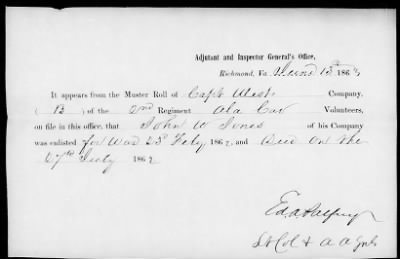 Adjutant and Inspector General's Office,
Richmond, Va. June 13th 1863
It appears from the Muster Roll of Capt West Company,
(B) of the 2nd Regiment Ala Cav Volunteers,
on file in this office, that John W Jones of his Company
was enlisted for War 25 Feby 1862, and Died on the
27th July 1862.
Ed. A Palfrey
Lt Col & A A Genl